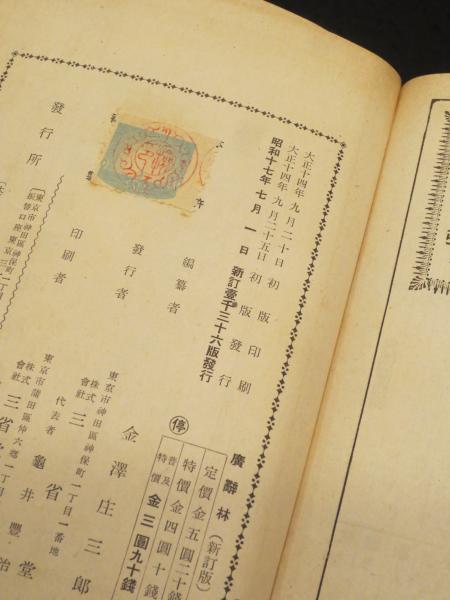 大正十四年九月二十日初版印刷
大正十四年九月二十五日初版發行
昭和十七年七月一日新訂壹千三十六版發行
廣辭林（新訂版）
定價金五圓二十錢
特價金四圓十錢
普及特價金三圓九十錢
停
編纂者
金澤庄三郎
發行者
東京市神田區神保町一丁目一番地
株式會社三省堂
代表者
龜井豐治
印刷者
東京市蒲田區仲六鄕一丁目
株式會社三省
發行所
東京市神田區神保町一丁目
振替口座東京三